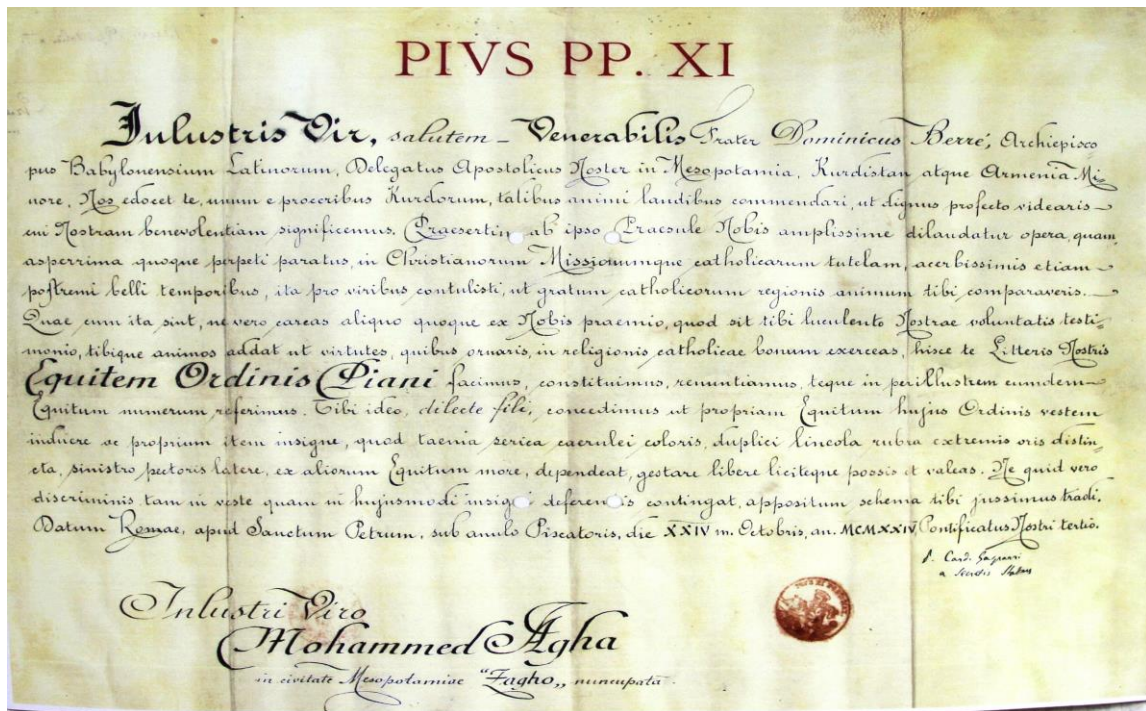 PIVS PP. XI
Inlustris Vir, salutem - Venerabilis Frater Dominicus Berré, Archiepisco
pus Babylonensium Latinorum, Delegatus Apostolicus Noster in Mesopotamia, Kurdistan atque Armenia Mi-
nore, Nos edocet te, unum e proceribus Kurdorum, talibus animi laudibus commendari, ut dignus profecto videaris
cui Nostram benevolentiam significemus. Praesertim ab ipso Praesule Nobis amplissime dilaudatur opera, quam,
asperrima quoque perpeti paratus, in Christianorum Missionumque catholicarum tutelam, acerbissimis etiam
postremi belli temporibus, ita pro viribus contulisti, ut gratum catholicorum regionis animum tibi comparaveris.
Quae cum ita sint, ne vero careas aliquo quoque ex Nobis praemio, quod sit tibi luculento Nostrae voluntatis testi=
monio, tibique animos addat ut virtutes, quibus ornaris, in religionis catholicae bonum exerceas, hisce te Litteris Nostris
Equitem Ordinis Piani facimus, constituimus, renuntiamus, teque in perillustrem eumdem
Equitum numerum referimus. Tibi ideo, dilecte fili, concedimus ut propriam Equitum hujus Ordinis vestem
induere ac proprium item insigne, quod taenia serica caerulei coloris, duplici lineola rubra extremis oris distin
cta, sinistro pectoris latere, ex aliorum Equitum more, dependeat, gestare libere liciteque possis et valeas. Ne quid vero
discriminis tam in veste quam in hujusmodi deferendis contingat, appositum schema tibi jussimus tradi.
Datum Romae, apud Sanctum Petrum, sub anulo Piscatoris, die XXIV m. Octobris, an. MCMXXIV, Pontificatus Nostri tertio.
P. Card. Gasparri
a Secretis Status
Inlustri Viro
Mohammed Agha
in civitate Mesopotamiae "Zagho„ nuncupata.